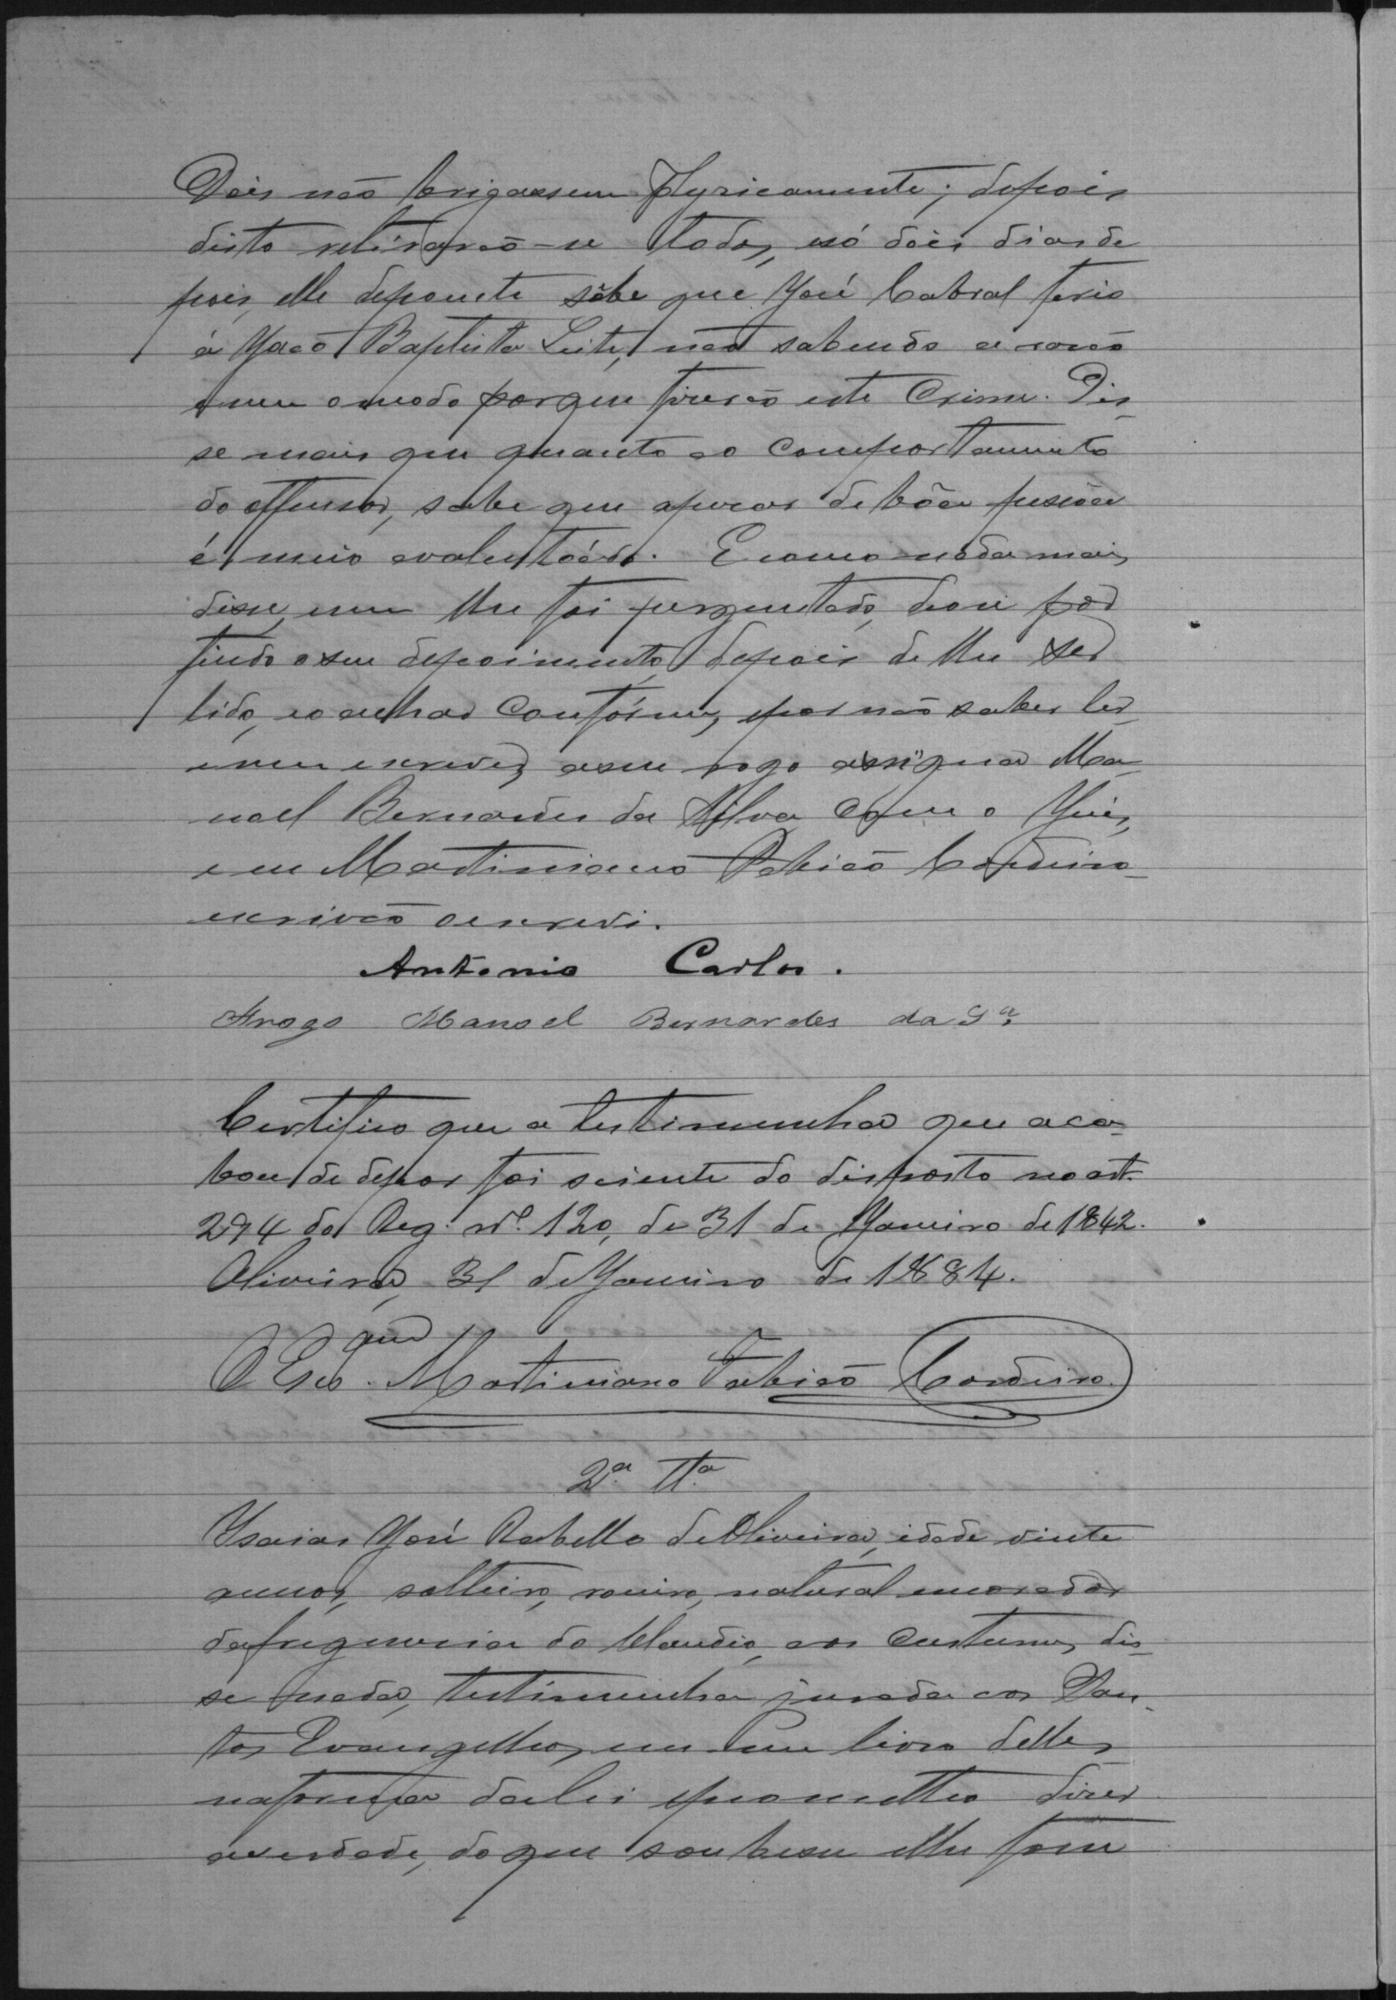 Dois não brigassem phyzicamente; depois
disto retirarão-se todos, e só dois dias de
pois, elle depoente sóbe que José Cabral ferio
á João Baptista Leite, não sabendo a rasão
e nem o modo porque tiverão este Crime. Dis-
se mais que quanto ao comportamento
do offensor, sabe que apezar de bôa pessôa
é meio avalentoádo. E como nada mais
disse, nem lhe foi perguntado, deou por
findo o seu depoimento, depois de lhe ser
lido, e o achar confórme, e por não saber ler
e nem escrever, a seu rogo assigna Ma-
noel Bernardes da Silva com o Juiz,
e eu Martiniano Fabião Cordeiro
escrivão o escrevi.
Antonio Carlos.
Arogo Manoel Bernardes da Sª.
Certifico que a testimunha que aca-
bou de depor foi sciente do disposto no art.
294 do Reg. nº. 120, de 31 de Janeiro de 1842.
Oliveira, 31 de Janeiro de 1884.
O Escº. Martiniano Fabião Cordeiro.
2ª. Ttª.
Ysaias José Rabello de Oliveira, idade vinte
annos, solteiro, natural e morador
da freguesia do Claudio, aos custumes dis-
se nada, testimunha jurada aos San-
tos Evangelhos, em um livro delles
na forma da lei e prometteo dizer
a verdade, do que soubesse e lhe fosse